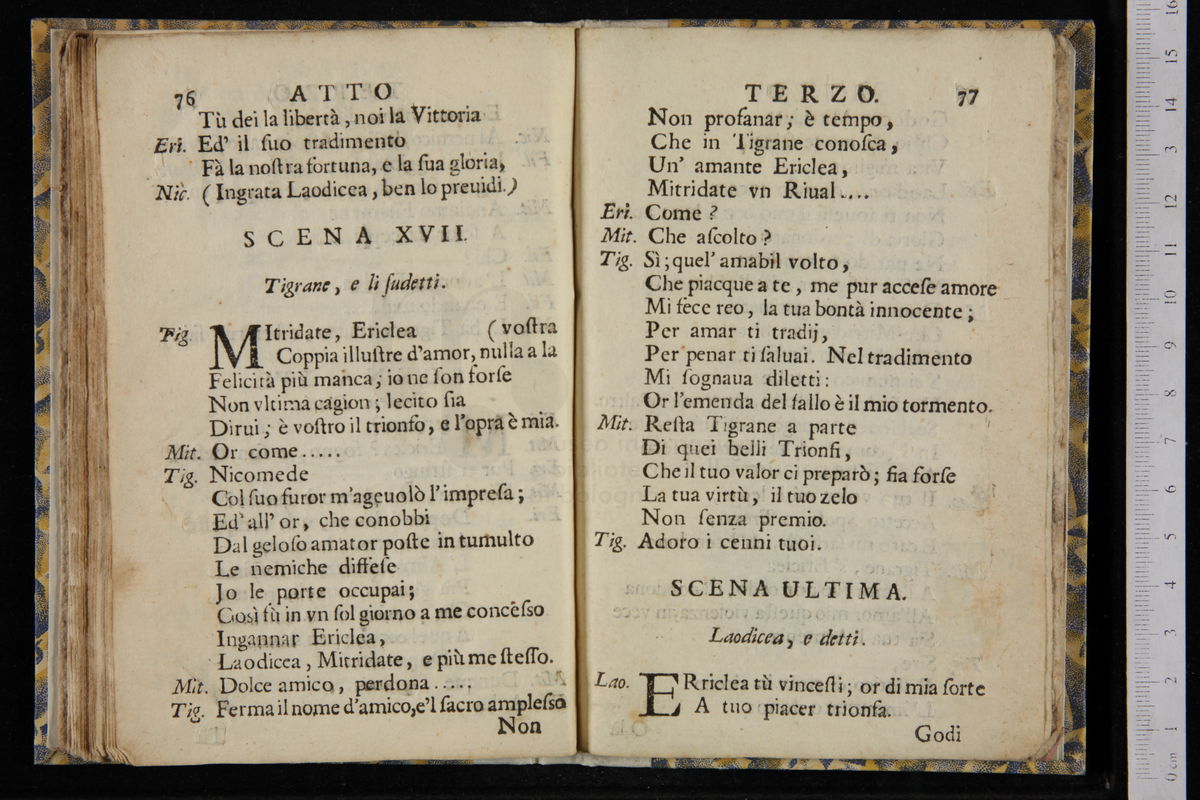 76 ATTO
Tù dei la libertà, noi la Vittoria
Eri. Ed' il ſuo tradimento
Fà la noſtra fortuna, e la ſua gloria,
Nic. (Ingrata Laodicea, ben lo preuidi.)
SCENA XVII.
Tigrane, e li ſudetti.
Tig. MItridate, Ericlea (voſtra
Coppia illuſtre d'amor, nulla a la
Felicità più manca, io ne ſon forſe
Non vltima cagion; lecito ſia
Dirui; è voſtro il trionfo, e l'opra è mia.
Mit. Or come.....
Tig. Nicomede
Col ſuo furor m'ageuolò l'impreſa;
Ed' all' or, che conobbi
Dal geloſo amator poſte in tumulto
Le nemiche diffeſe
Jo le porte occupai;
Così fù in vn ſol giorno a me conceſſo
Ingannar Ericlea,
Laodicea, Mitridate, e più me ſteſſo.
Mit. Dolce amico, perdona.....
Tig. Ferma il nome d'amico, e'l ſacro ampleſſo
Non
TERZO. 77
Non profanar; è tempo,
Che in Tigrane conoſca,
Un' amante Ericlea,
Mitridate vn Riual....
Eri. Come?
Mit. Che aſcolto?
Tig. Sì; quel' amabil volto,
Che piacque a te, me pur acceſe amore
Mi fece reo, la tua bontà innocente;
Per amar ti tradij,
Per penar ti ſaluai. Nel tradimento
Mi ſognaua diletti:
Or l'emenda del fallo è il mio tormento.
Mit. Reſta Tigrane a parte
Di quei belli Trionfi,
Che il tuo valor ci preparò; fia forſe
La tua virtù, il tuo zelo
Non ſenza premio.
Tig. Adoro i cenni tuoi.
SCENA ULTIMA.
Laodicea, e detti.
Lao. ERriclea tù vinceſti; or di mia ſorte
A tuo piacer trionfa.
Godi